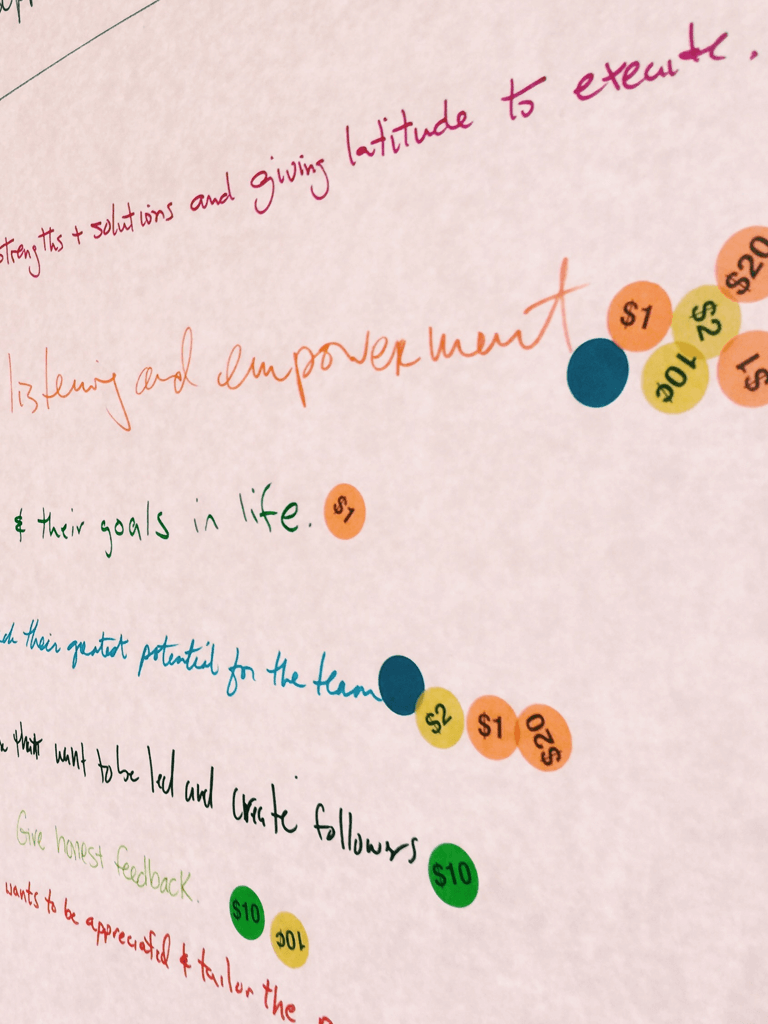 strengths + solutions and giving latitude to execute.
$20
listening and empowerment $1 $2
10¢ $1
& their goals in life. $1
their greatest potential for the team $2 $1 $20
that want to be led and create followers $10
Give honest feedback. $10 10¢
wants to be appreciated & tailor the